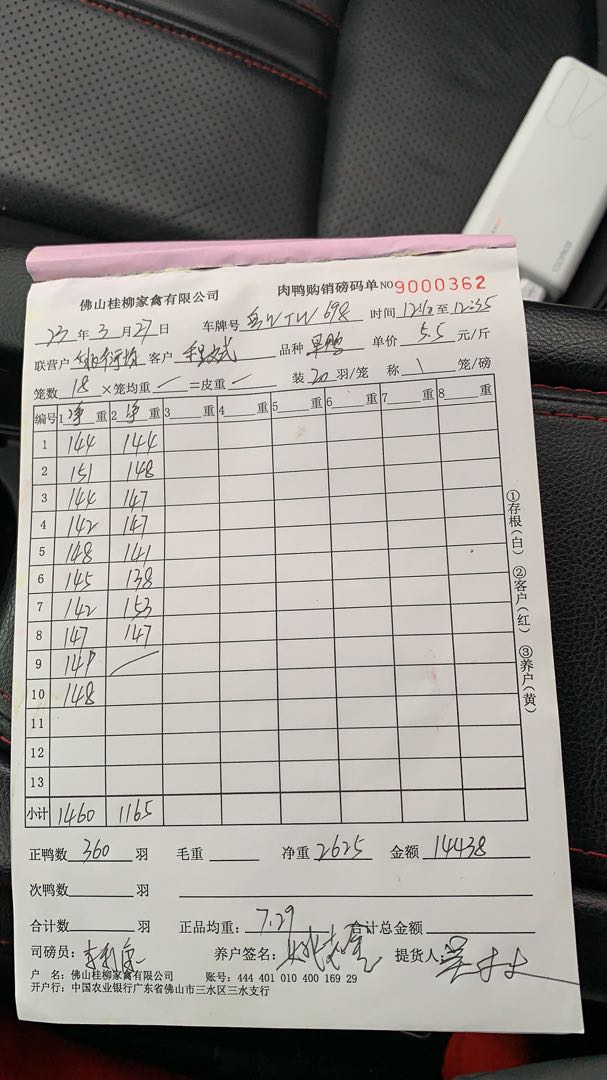 佛山桂柳家禽有限公司 肉鸭购销磅码单 NO 9000362
23 年 3 月 27 日 车牌号 时间 至 12:35
联营户 客户 品种 单价 5.5 元/斤
笼数 18 ×笼均重 — =皮重 — 装 20 羽/笼 称 1 笼/磅
编号 1 净 重 2 净 重 3 重 4 重 5 重 6 重 7 重 8 重
1 144 144
2 151 148
3 144 147
4 142 147
5 148 141
6 145 138
7 142 153
8 147 147
9
10 148
11
12
13
小计 1460 1165
正鸭数 360 羽 毛重 净重 2625 金额 14438
次鸭数 羽
合计数 羽 正品均重: 7.29 合计总金额
司磅员: 养户签名: 提货人:
户 名: 佛山桂柳家禽有限公司 账号: 444 401 010 400 169 29
开户行: 中国农业银行广东省佛山市三水区三水支行
①存根(白) ②客户(红) ③养户(黄)
20